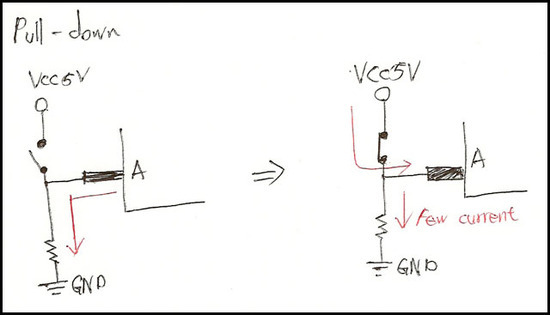 Pull-down
Vcc5V
A
GND
Vcc5V
A
Few current
GND